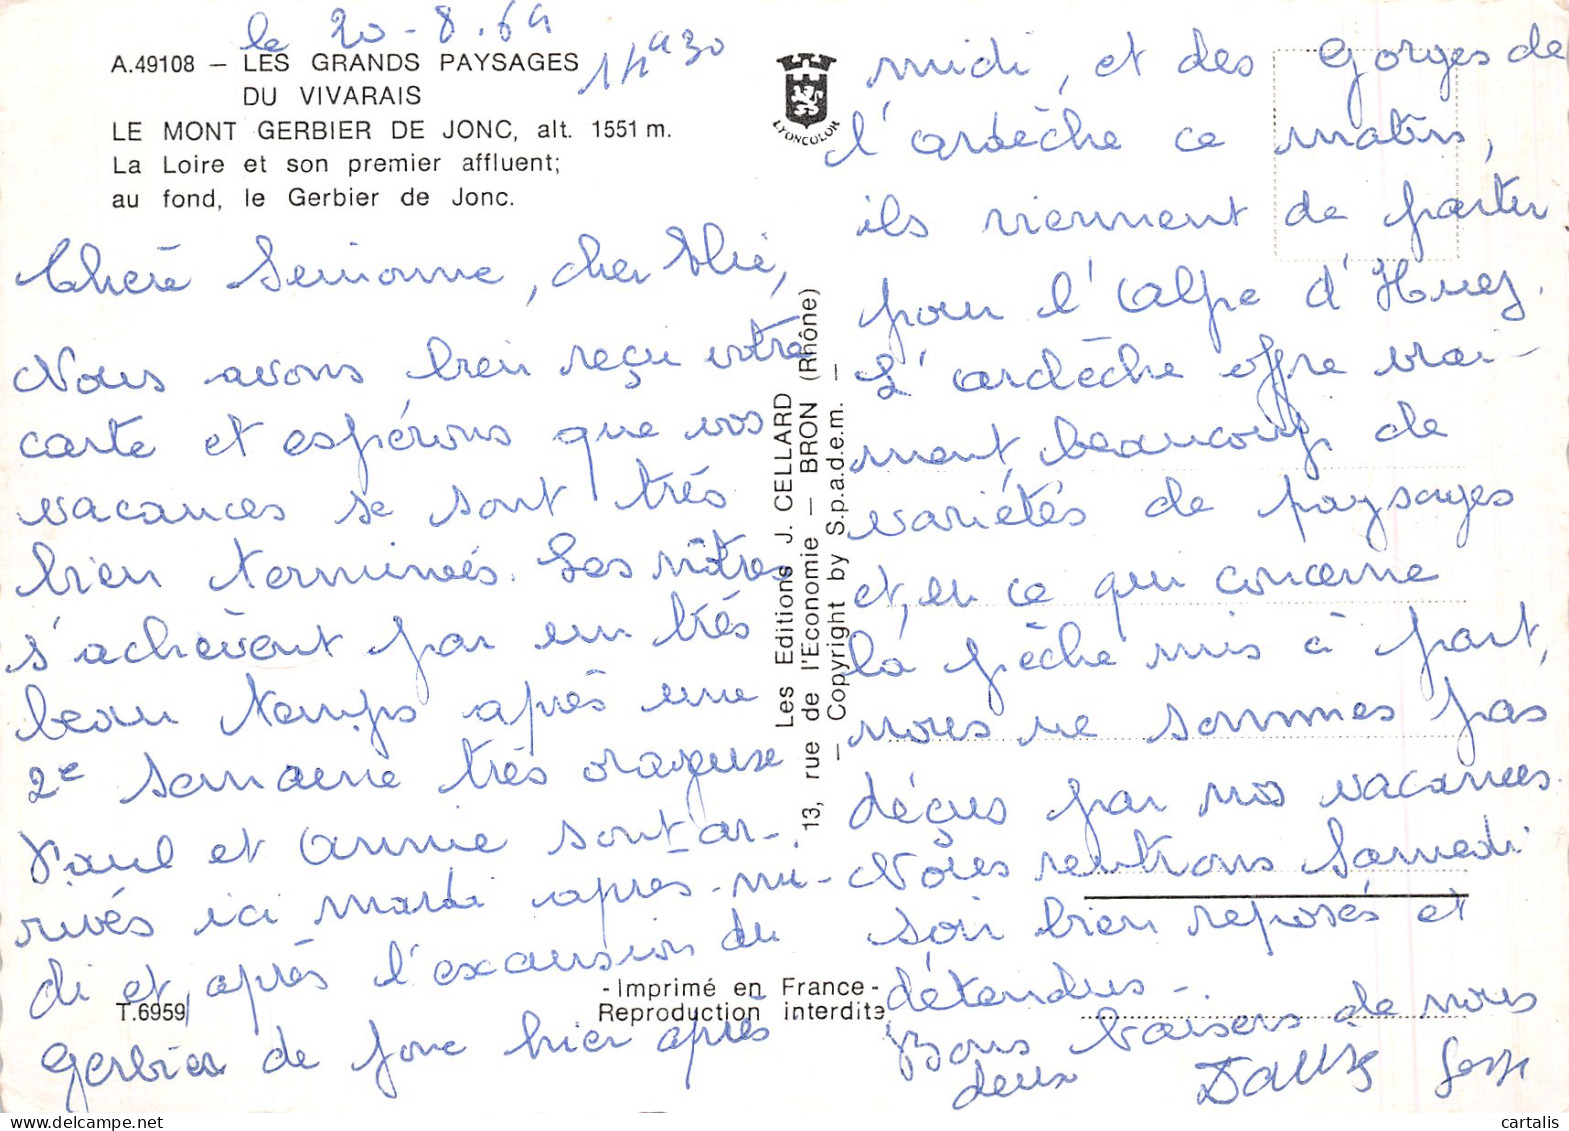 le 20-8.64
14h30
A.49108 — LES GRANDS PAYSAGES
DU VIVARAIS
LE MONT GERBIER DE JONC, alt. 1551 m.
La Loire et son premier affluent;
au fond, le Gerbier de Jonc.
Chère Simonne, cher Elie,
Nous avons bien reçu votre
carte et espérons que vos
vacances se sont très
bien terminées. Les nôtres
s'achèvent par un très
beau temps après une
2e semaine très orageuse
Paul et Annie sont ar-
rivés ici mardi après-mi-
di et, après l'excursion du
Gerbier de Jonc hier après
T.6959
LYONCOLOR
Les Editions J. CELLARD
13, rue de l'Economie — BRON (Rhône)
— Copyright by S.p.a.d.e.m. —
-Imprimé en France-
Reproduction interdite
midi, et des Gorges de
l'Ardèche ce matin,
ils viennent de partir
pour l'Alpe d'Huez.
L'Ardèche offre vrai-
ment beaucoup de
variétés de paysages
et, en ce qui concerne
la pêche mis à part,
nous ne sommes pas
déçus par nos vacances.
Nous rentrons Samedi
soir bien reposés et
détendus-.
Bons baisers de nous
deux